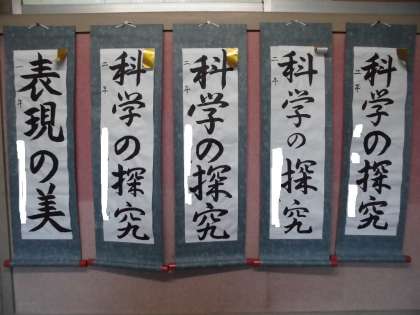 表現の美
二年
科学の探究
二年
科学の探究
二年
科学の探究
二年
科学の探究
二年